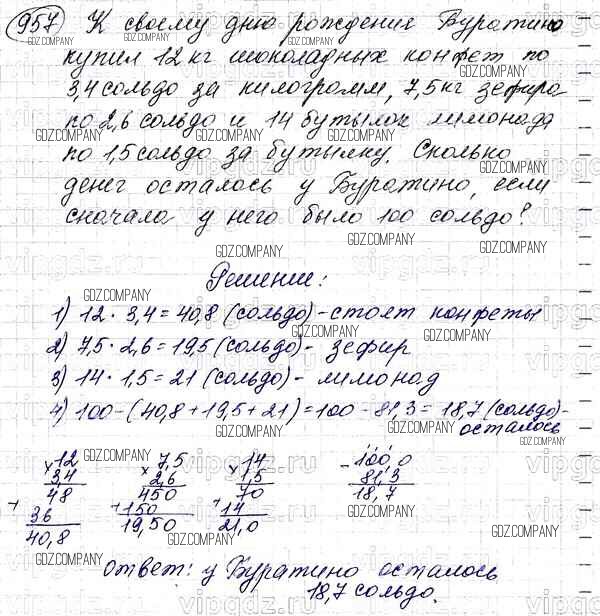 957 К своему дню рождения Буратино
купил 12 кг шоколадных конфет по
3,4 сольдо за килограмм, 7,5 кг зефира
по 2,6 сольдо и 14 бутылок лимонада
по 1,5 сольдо за бутылку. Сколько
денег осталось у Буратино, если
сначала у него было 100 сольдо?
Решение:
1) 12 · 3,4 = 40,8 (сольдо) - стоят конфеты
2) 7,5 · 2,6 = 19,5 (сольдо) - зефир
3) 14 · 1,5 = 21 (сольдо) - лимонад
4) 100 - (40,8 + 19,5 + 21) = 100 - 81,3 = 18,7 (сольдо) -
осталось
× 12 × 7,5 × 14 - 100,0
3,4 2,6 1,5 81,3
48 450 70 18,7
+ 36 + 150 + 14
40,8 19,50 21,0
Ответ: у Буратино осталось
18,7 сольдо.
GDZ.COMPANY
vipgdz.ru